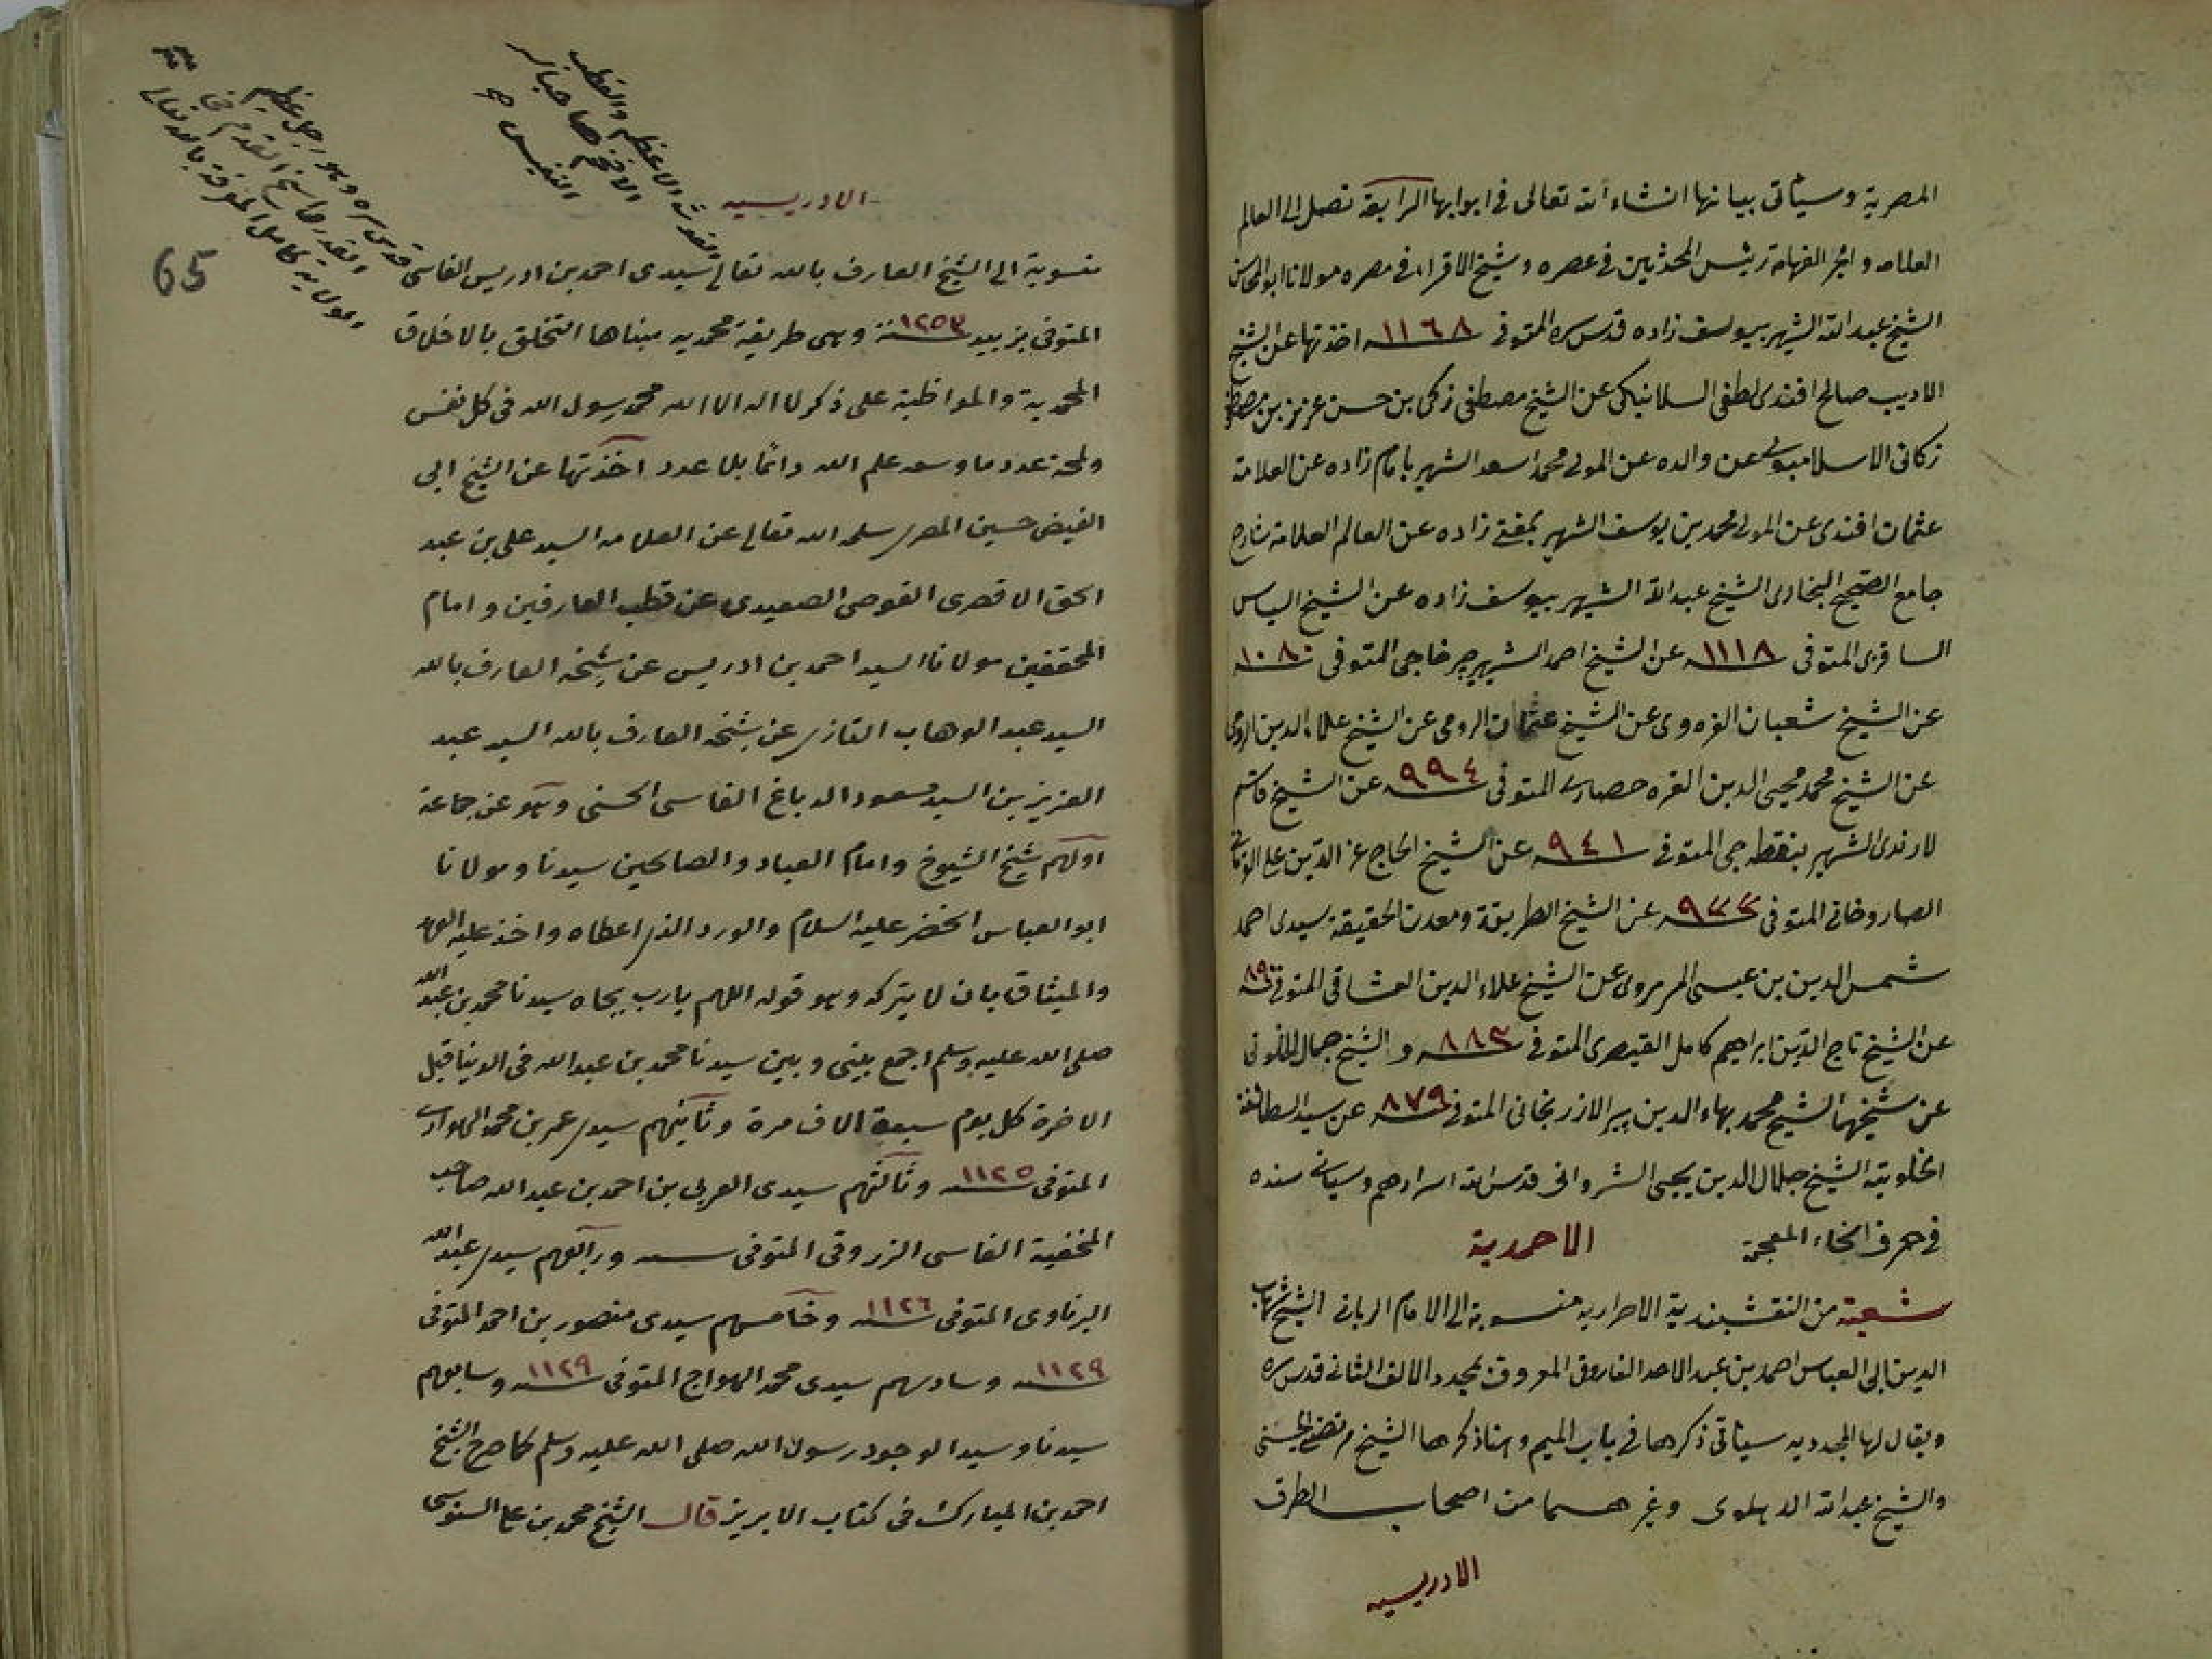 المصرية وسيأتى بيانها انشاء الله تعالى فى ابوابها الرابعة تصل الى العالم
العلامه و الفهامة رئيس المحدثين فى عصره وشيخ الاقراء فى مصره مولانا ابو المحاسن
الشيخ عبد الله الشهير بيوسف زاده قدس سره المتوفى ١١٦٨ اخذتها عن الشيخ
الاديب صالح افندى لطفى السلانيكى عن الشيخ مصطفى زكى بن حسن عزيز بن مصطفى
زكائى الاسلامبولى عن والده عن المولى محمد اسعد الشهير بامام زاده عن العلامة
عثمان افندى عن المولى محمد بن يوسف الشهير بمفتى زاده عن العالم العلامة شارح
جامع الصحيح البخارى الشيخ عبد الله الشهير بيوسف زاده عن الشيخ الياس
الساقزى المتوفى ١١١٨ عن الشيخ احمد الشهير خاجى المتوفى ١٠٨٠
عن الشيخ شعبان القره وى عن الشيخ عثمان الرومى عن الشيخ علاء الدين الرومى
عن الشيخ محمد محيى الدين القره حصارى المتوفى ٩٩٤ عن الشيخ قاسم
لارندى الشهير المتوفى ٩٤١ عن الشيخ الحاج عز الدين على
الصاروخانى المتوفى ٩٢٢ عن الشيخ الطريقة ومعدن الحقيقة سيدى احمد
شمس الدين بن عيسى المرمروى عن الشيخ علاء الدين العشاقى المتوفى ٨٩
عن الشيخ تاج الدين ابراهيم كامل القيصرى المتوفى ٨٨٣ و الشيخ جمال الخلوتى
عن شيخهما الشيخ محمد بهاء الدين پير الازرنجانى المتوفى ٨٧٩ عن سيد الطائفة
الخلوتية الشيخ جلال الدين يحيى الشروانى قدس الله اسرارهم وسيأتى سنده
فى حرف الخاء المعجمة الاحمدية
شعبة من النقشبندية الاحرارية منسوبة الى الامام الربانى الشيخ شهاب
الدين ابى العباس احمد بن عبد الاحد الفاروقى المعروف بمجدد الالف الثانى قدس سره
ويقال لها المجدديه سيأتى ذكرها فى باب الميم و ذكرها الشيخ مرتضى الحسينى
والشيخ عبد الله الدهلوى وغيرهما من اصحاب الطرق
الادريسيه
الادريسيه
65
منسوبة الى الشيخ العارف بالله تعالى سيدى احمد بن ادريس الفاسى قدس سره وهو رجل عظيم
القدر راسخ القدم فى
بالله تعالى
الغوث الاعظم والقطب
الافخم صاحب
النفيس
المتوفى بزبيد ١٢٥٣ سنة وهى طريقة محمديه مبناها التخلق بالاخلاق
المحمدية والمواظبة على ذكر لا اله الا الله محمد رسول الله فى كل نفس
ولمحة عدد ما وسعه علم الله دائما بلا عدد اخذتها عن الشيخ ابى
الفيض حسين المصرى سلمه الله تعالى عن العلامه السيد على بن عبد
الحق الاقصرى القوصى الصعيدى عن قطب العارفين و امام
المحققين مولانا السيد احمد بن ادريس عن شيخه العارف بالله
السيد عبد الوهاب التازى عن شيخه العارف بالله السيد عبد
العزيز بن السيد مسعود الدباغ الفاسى الحسنى وهو عن جماعة
اولهم شيخ الشيوخ وامام العباد والصالحين سيدنا ومولانا
ابو العباس الخضر عليه السلام والورد الذى اعطاه واخذ عليه العهد
والميثاق بان لا يتركه وهو قوله اللهم يا رب بجاه سيدنا محمد بن عبد الله
صلى الله عليه وسلم اجمع بينى وبين سيدنا محمد بن عبد الله فى الدنيا قبل
الاخرة كل يوم سبعة الاف مرة وثانيهم سيدى عمر بن محمد الهوارى
المتوفى ١١٢٥ وثالثهم سيدى العربى بن احمد بن عبد الله صاحب
المخفية الفاسى الزروقى المتوفى سنه ورابعهم سيدى عبد الله
البرناوى المتوفى ١١٢٦ وخامسهم سيدى منصور بن احمد المتوفى
١١٢٩ وسادسهم سيدى محمد الهواج المتوفى ١١٢٩ وسابعهم
سيدنا وسيد الوجود رسول الله صلى الله عليه وسلم كما صرح الشيخ
احمد بن المبارك فى كتاب الابريز قال الشيخ محمد بن على السنوسى